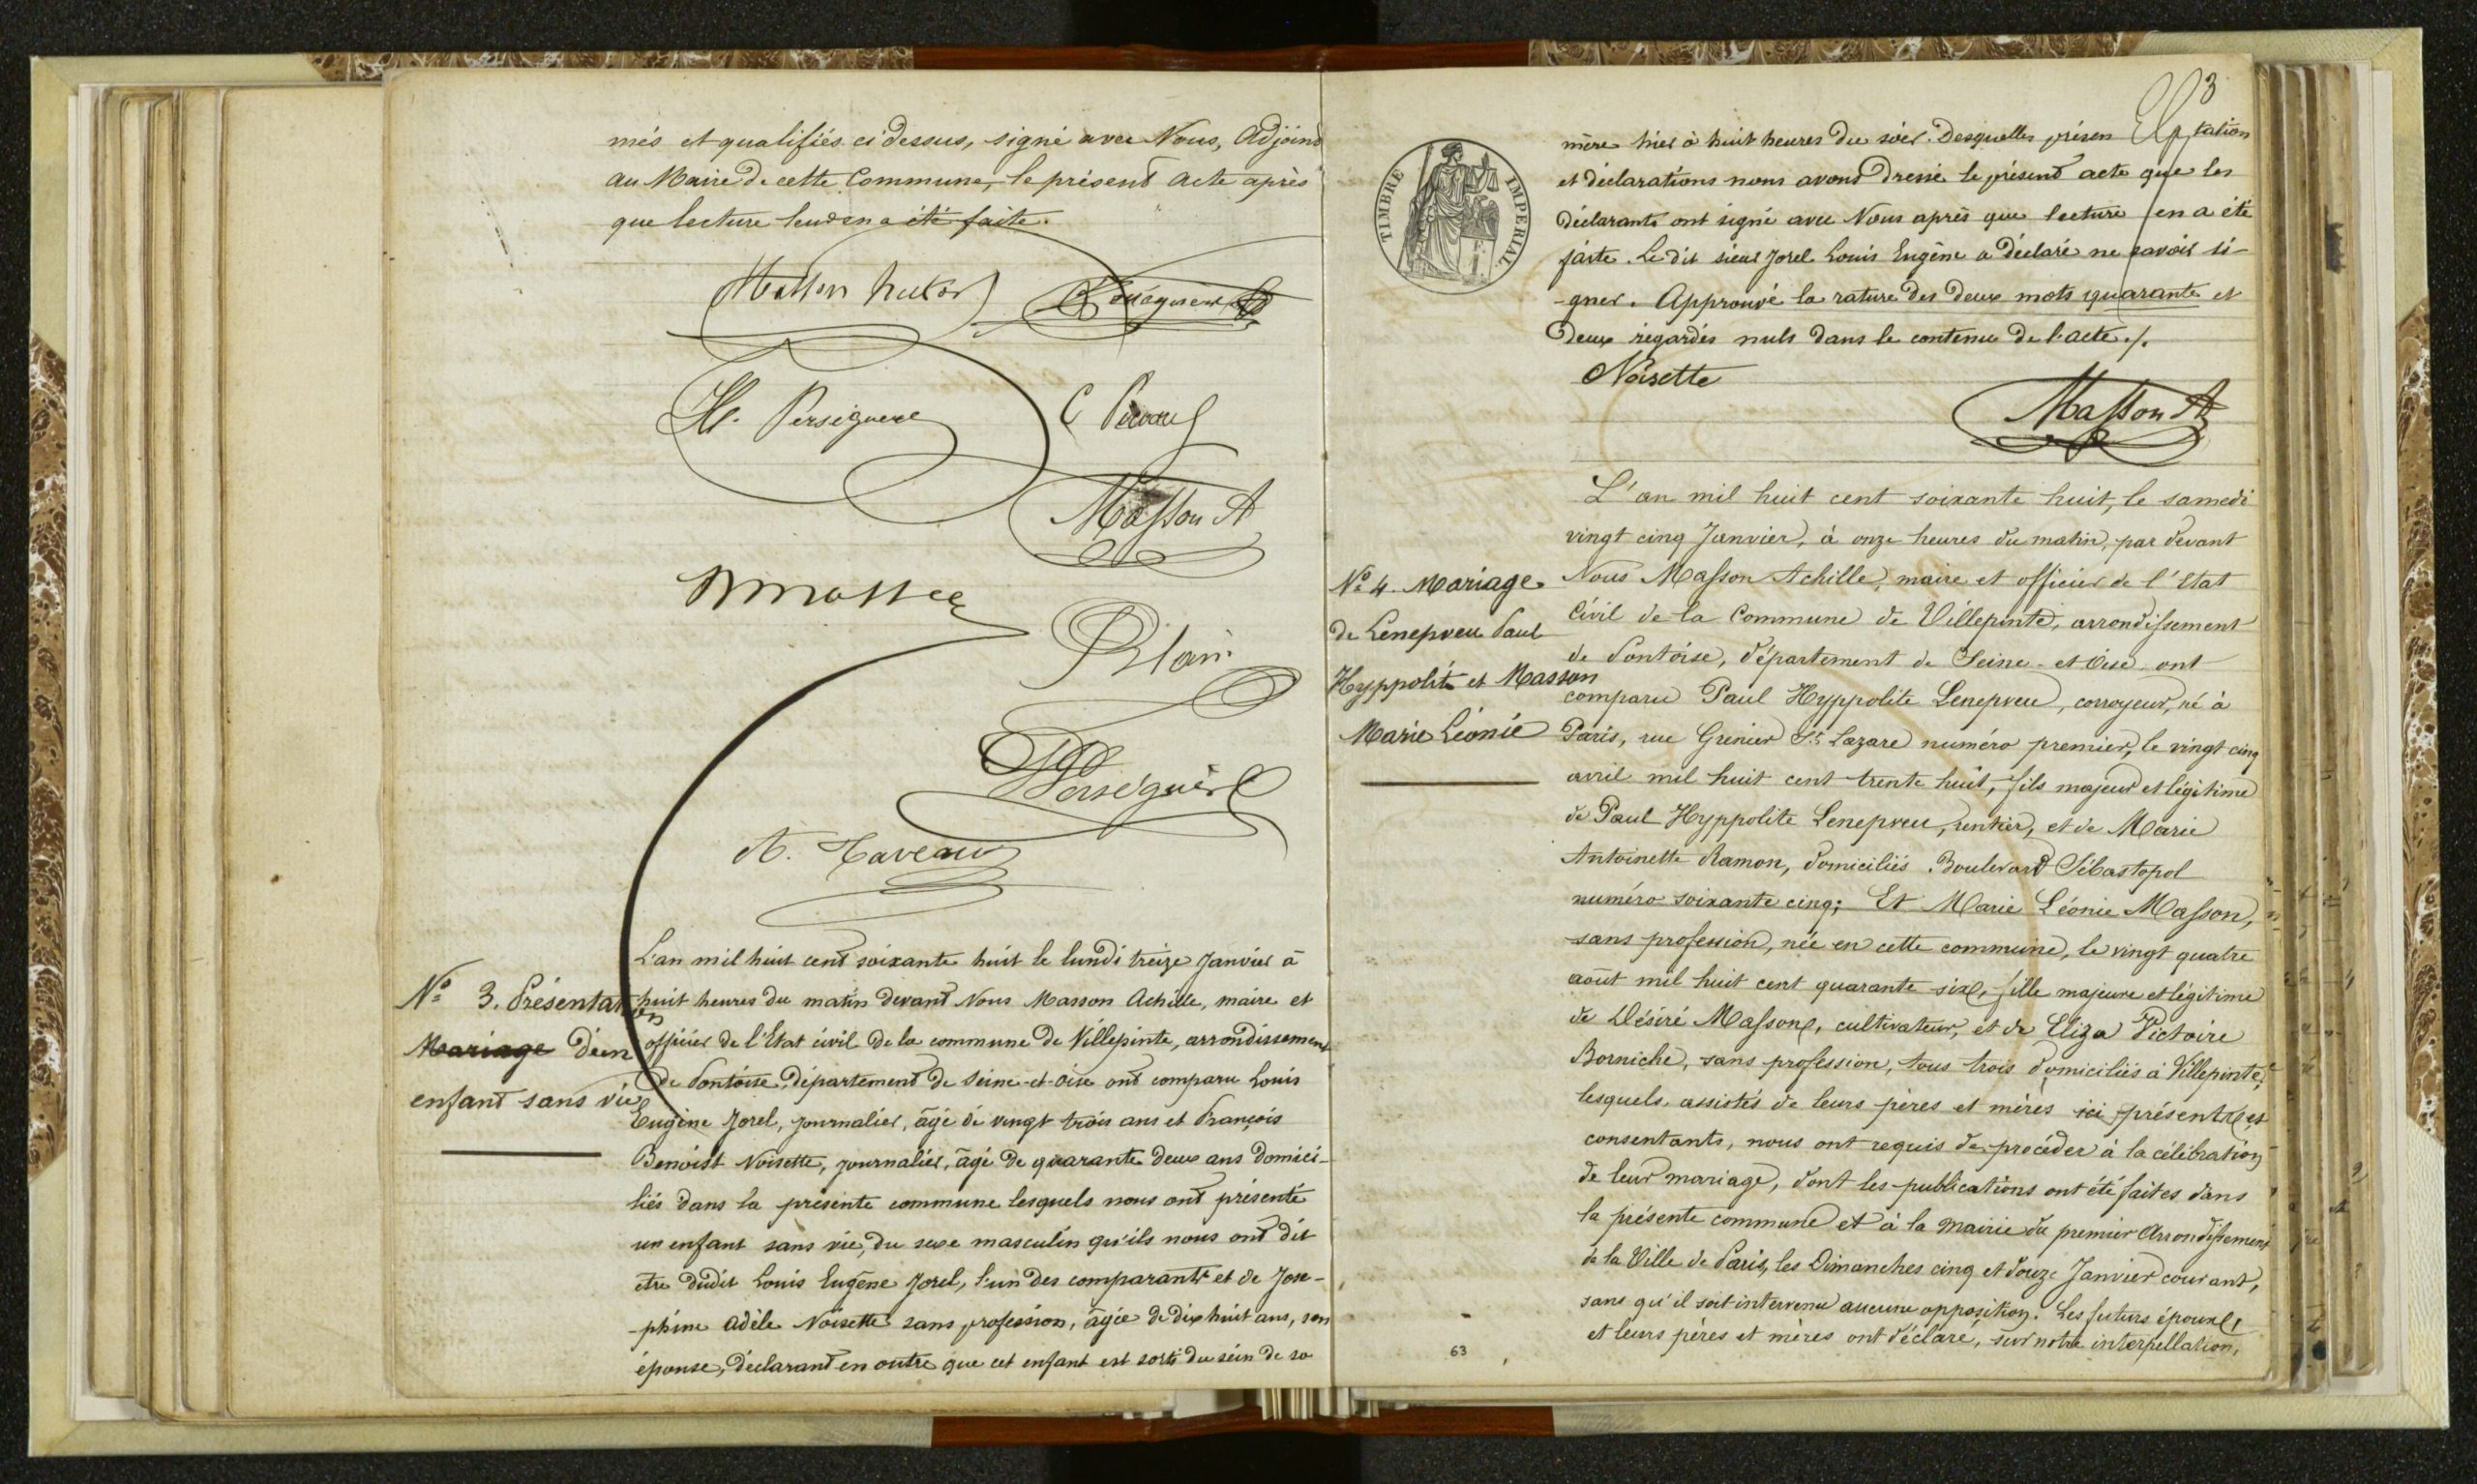 més et qualifiés ci dessus, signé avec Nous, Adjoint
au Maire de cette Commune, le présent acte après
que lecture leur en a été faite.
Masson
H. Perseguere
C
Masson A
Perséguère
L'an mil huit cent soixante huit le lundi treize Janvier à
N° 3. Présentation
huit heures du matin devant Nous Masson Achille, maire et
Mariage d'un
officier de l'Etat civil de la commune de Villepinte, arrondissement
de Pontoise, département de Seine-et-Oise ont comparu Louis
enfant sans vie
Eugène Jorel, journalier, âgé de vingt trois ans et François
Benoist Noisette, journalier, âgé de quarante deux ans domici-
liés dans la présente commune lesquels nous ont présenté
un enfant sans vie, du sexe masculin qu'ils nous ont dit
etre dudit Louis Eugène Jorel, l'un des comparants et de Jose-
-phine Adèle Noisette sans profession, âgée de dix huit ans, son
épouse, déclarant en outre que cet enfant est sorti du sein de sa
3
mère hier à huit heures du soir. Desquelles présentation
et déclarations nous avons dressé le présent acte que les
déclarants ont signé avec Nous après que lecture en a été
faite. Le dit sieur Jorel Louis Eugène a déclaré ne savoir si-
-gner. Approuvé la rature des deux mots quarante et
deux regardés nuls dans le contenu de l'acte./.
TIMBRE IMPERIAL
Noisette
Masson A
L'an mil huit cent soixante huit, le samedi
vingt cinq Janvier, à onze heures du matin, par devant
N° 4. Mariage
Nous Masson Achille, maire et officier de l'Etat
de Lenepveu Paul
Civil de la Commune de Villepinte, arrondissement
de Pontoise, département de Seine-et-Oise ont
Hyppolite et Masson
comparu Paul Hyppolite Lenepveu, corroyeur, né à
Marie Léonie
Paris, rue Grenier St Lazare numéro premier, le vingt cinq
avril mil huit cent trente huit, fils majeur et légitime
de Paul Hyppolite Lenepveu, rentier, et de Marie
Antoinette Ramon, domiciliés Boulevard Sébastopol
numéro soixante cinq; Et Marie Léonie Masson,
sans profession, née en cette commune, le vingt quatre
août mil huit cent quarante six, fille majeure et légitime
de Désiré Masson, cultivateur, et de Eliza Victoire
Borniche, sans profession, tous trois domiciliés à Villepinte,
lesquels assistés de leurs pères et mères ici présents et
consentants, nous ont requis de procéder à la célébration
de leur mariage, dont les publications ont été faites dans
la présente commune et à la Mairie du premier Arrondissement
de la Ville de Paris, les Dimanches cinq et douze Janvier courant,
sans qu'il soit intervenu aucune opposition. Les futurs époux
et leurs pères et mères ont déclaré, sur notre interpellation,
63